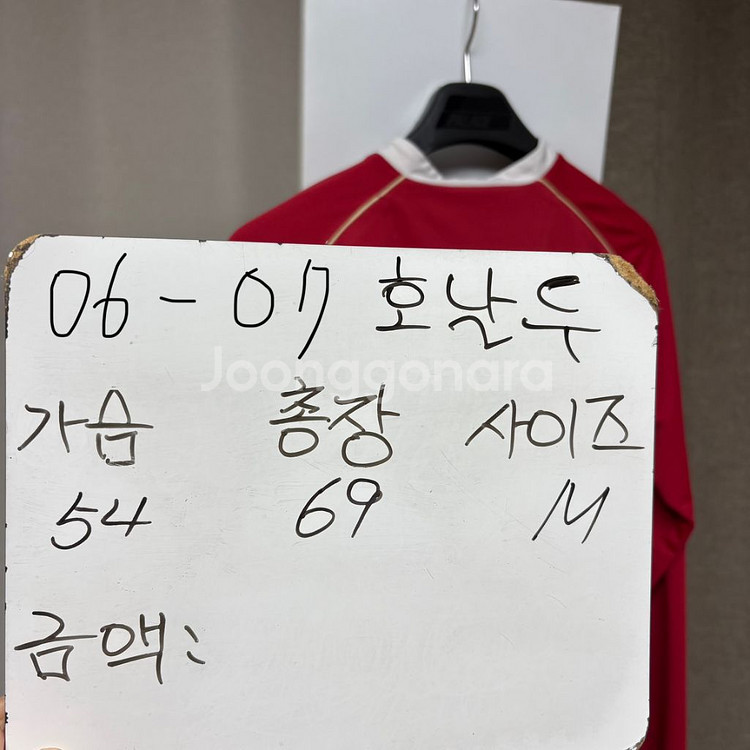 06 - 07 호날두
Joonggonara
가슴 총장 사이즈
54 69 M
금액: